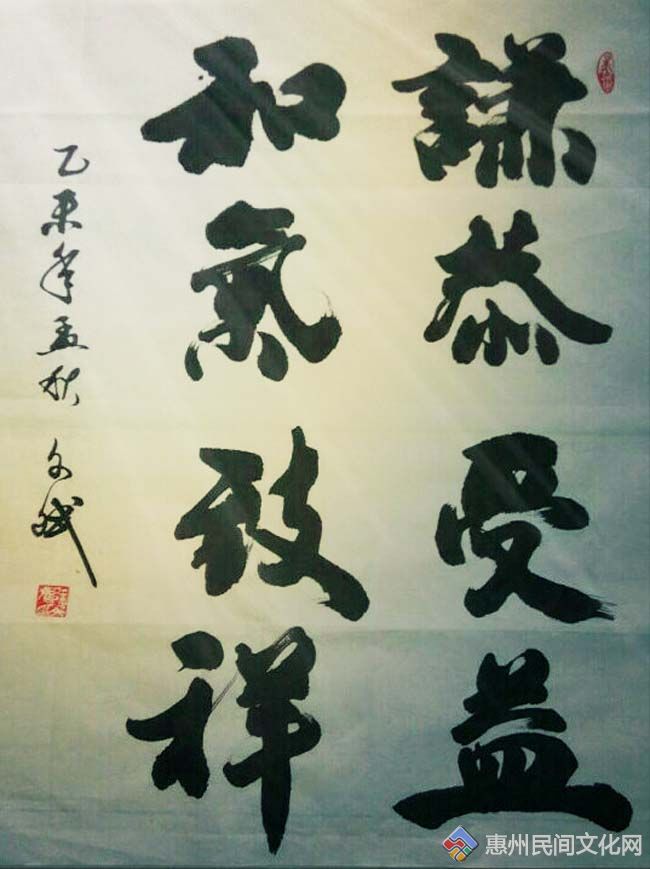 謙恭受益
和氣致祥
乙未年孟秋 文斌
惠州民间文化网